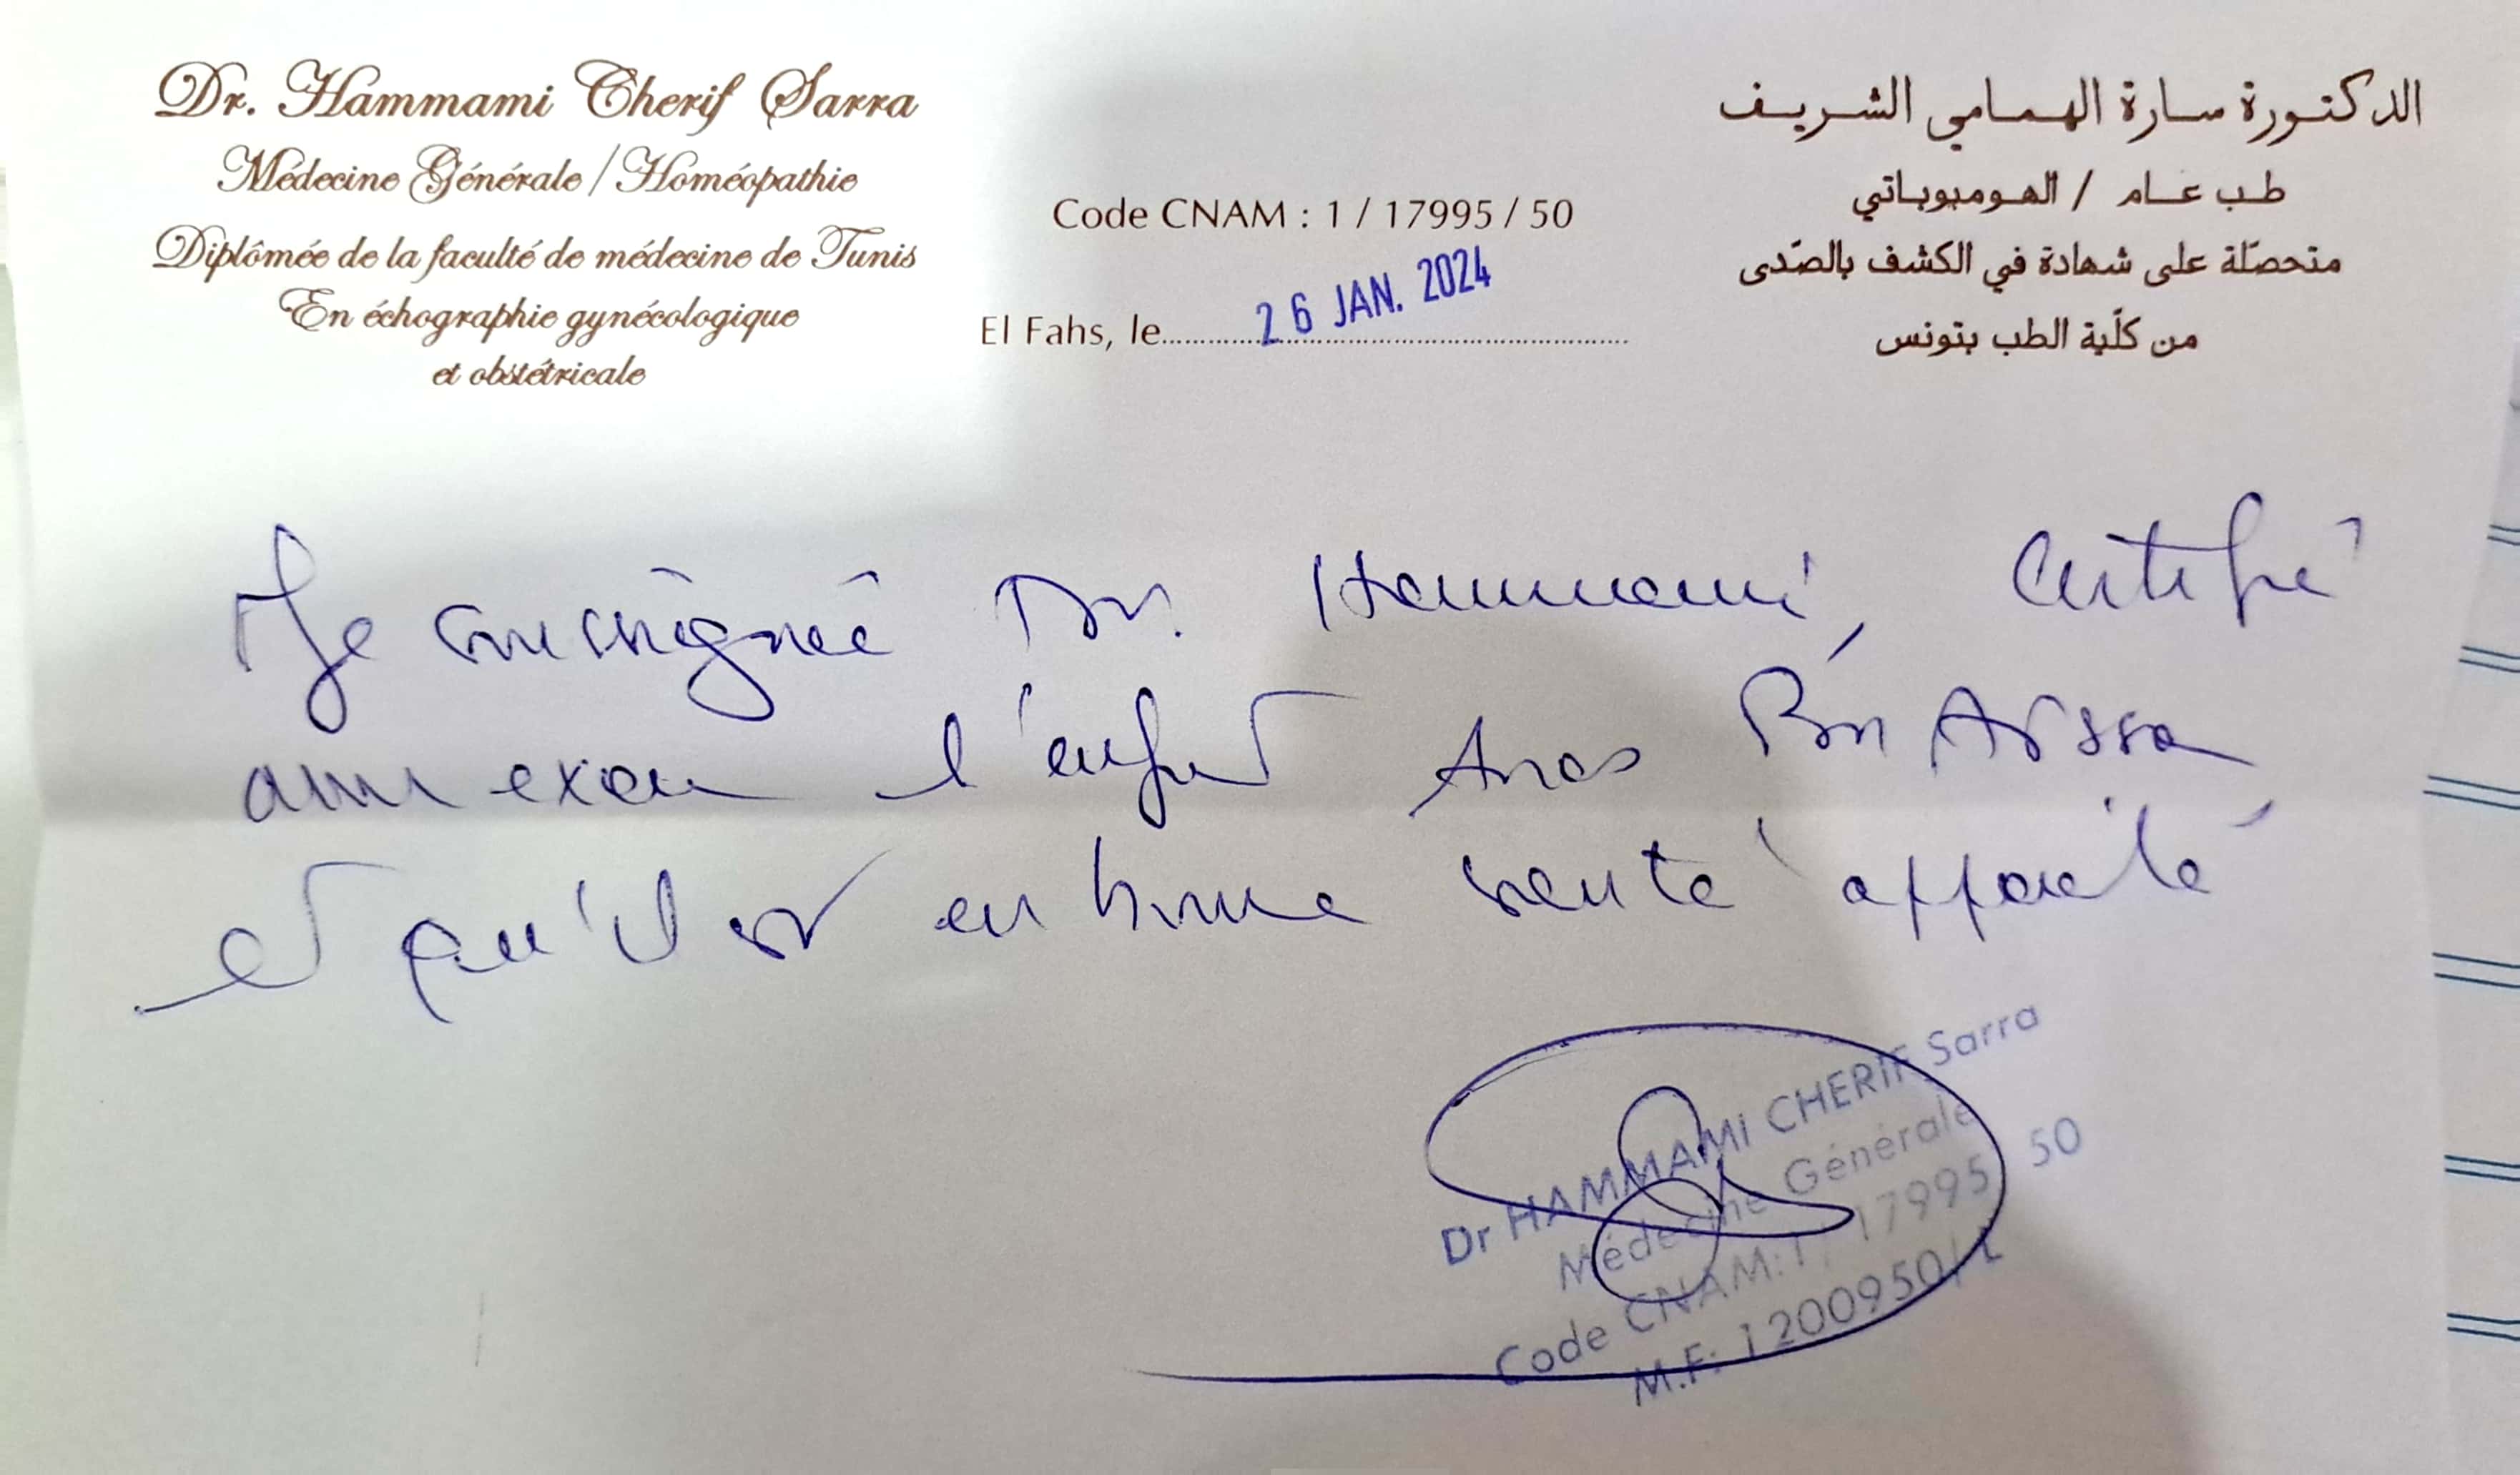 Dr. Hammami Cherif Sarra
Médecine Générale / Homéopathie
Diplômée de la faculté de médecine de Tunis
En échographie gynécologique
et obstétricale
Code CNAM : 1 / 17995 / 50
El Fahs, le 26 JAN. 2024
الدكتورة سارة الهمامي الشريف
طب عام / الهوميوباتي
متحصّلة على شهادة في الكشف بالصّدى
من كلّية الطب بتونس
Je soussignée Dr. Hammami, certifie
avoir examiné l'enfant Anas Bn Aissa
et qu'il est en bonne santé apparente
Dr HAMMAMI CHERIF Sarra
Médecine Générale
Code CNAM: 1 / 17995 / 50
M.F: 1200950/L